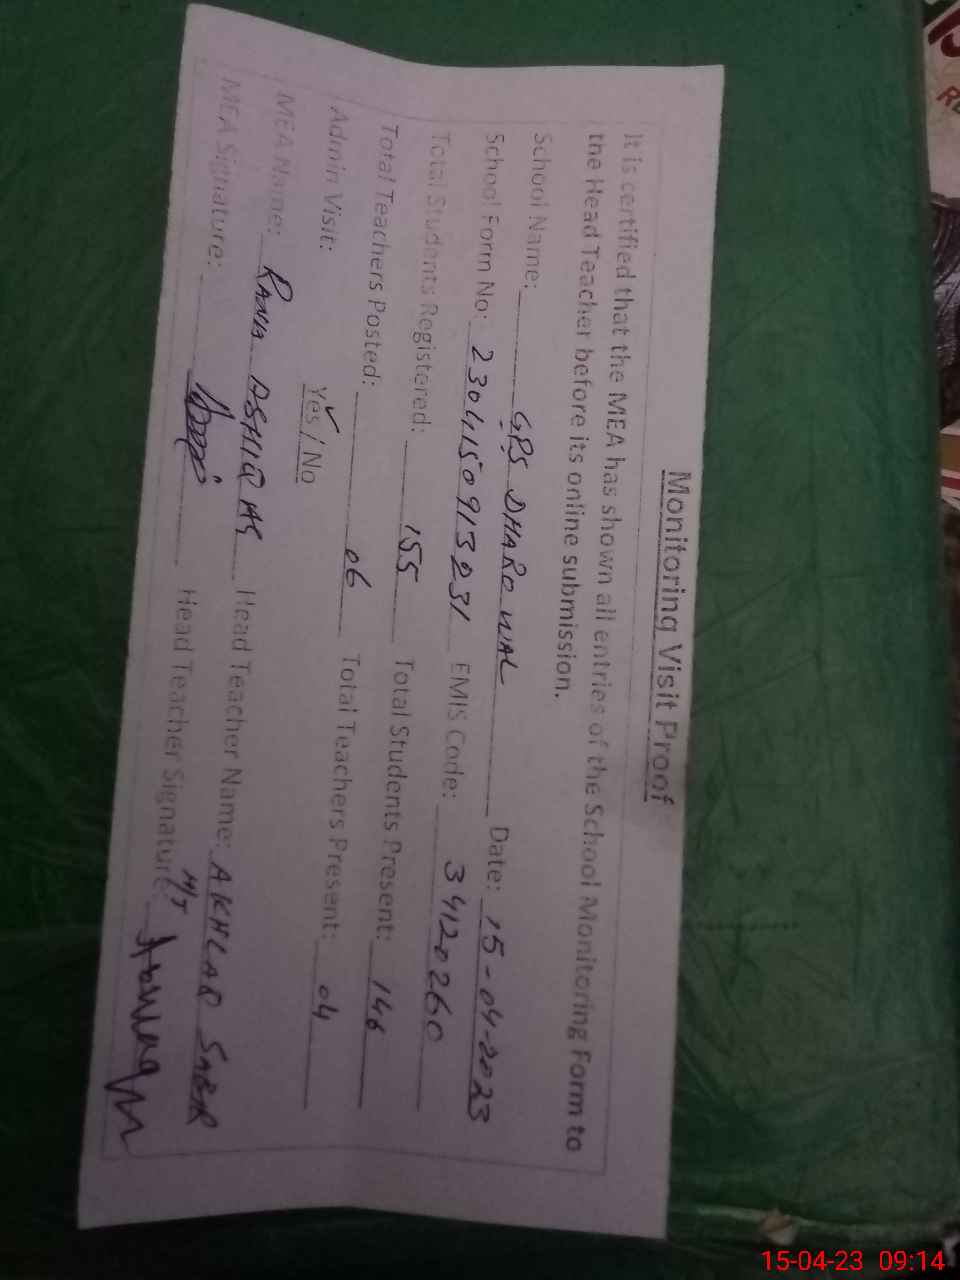 Monitoring Visit Proof
It is certified that the MEA has shown all entries of the School Monitoring Form to
the Head Teacher before its online submission.
School Name: GPS DHAROWAL Date: 15-04-2023
School Form No: 2304150913231 EMIS Code: 34120260
Total Students Registered: 155 Total Students Present: 146
Total Teachers Posted: 06 Total Teachers Present: 04
Admin Visit: Yes / No
MEA Name: RANA ASHIQ Head Teacher Name: AKHLAQ SABIR
MEA Signature: Head Teacher Signature:
15-04-23 09:14